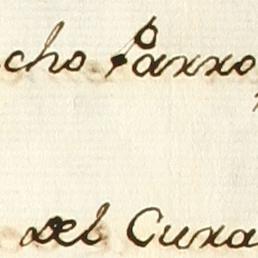 cho Parro
del Cura